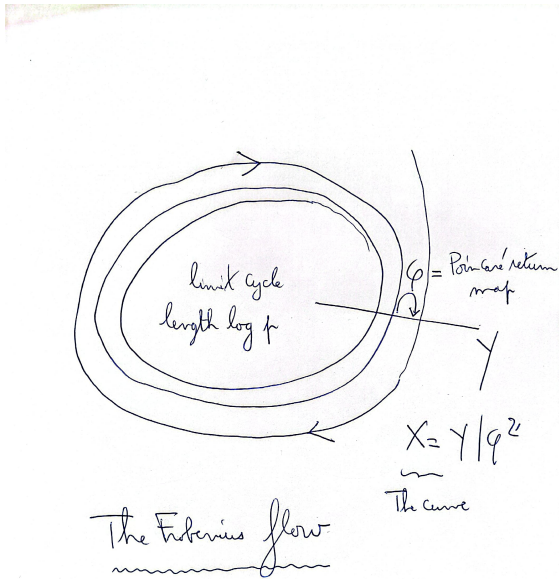 limit cycle
length log p
φ = Poincaré return
map
Y
X = Y/φ^ℤ
The curve
The Frobenius flow